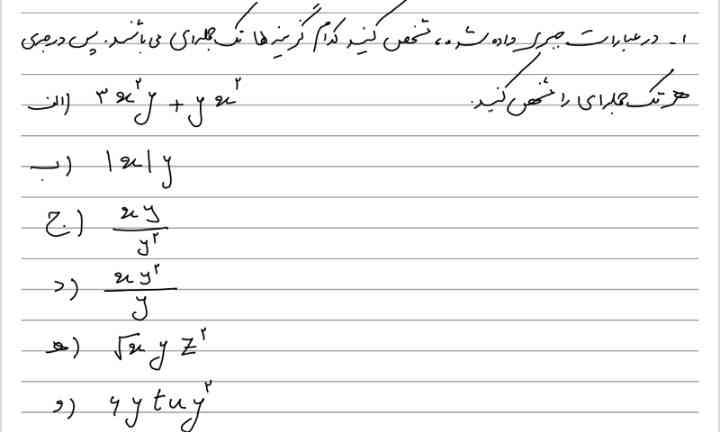 ۱- در عبارات جبری داده شده، مشخص کنید کدام گزینه ها تک جمله‌ای می باشند. سپس درجه‌ی
هر تک جمله‌ای را مشخص کنید.
الف) ۳x²y + yx²
ب) |x|y
ج) xy/y²
د) xy²/y
ه) √x y z²
و) ۶ytuy²